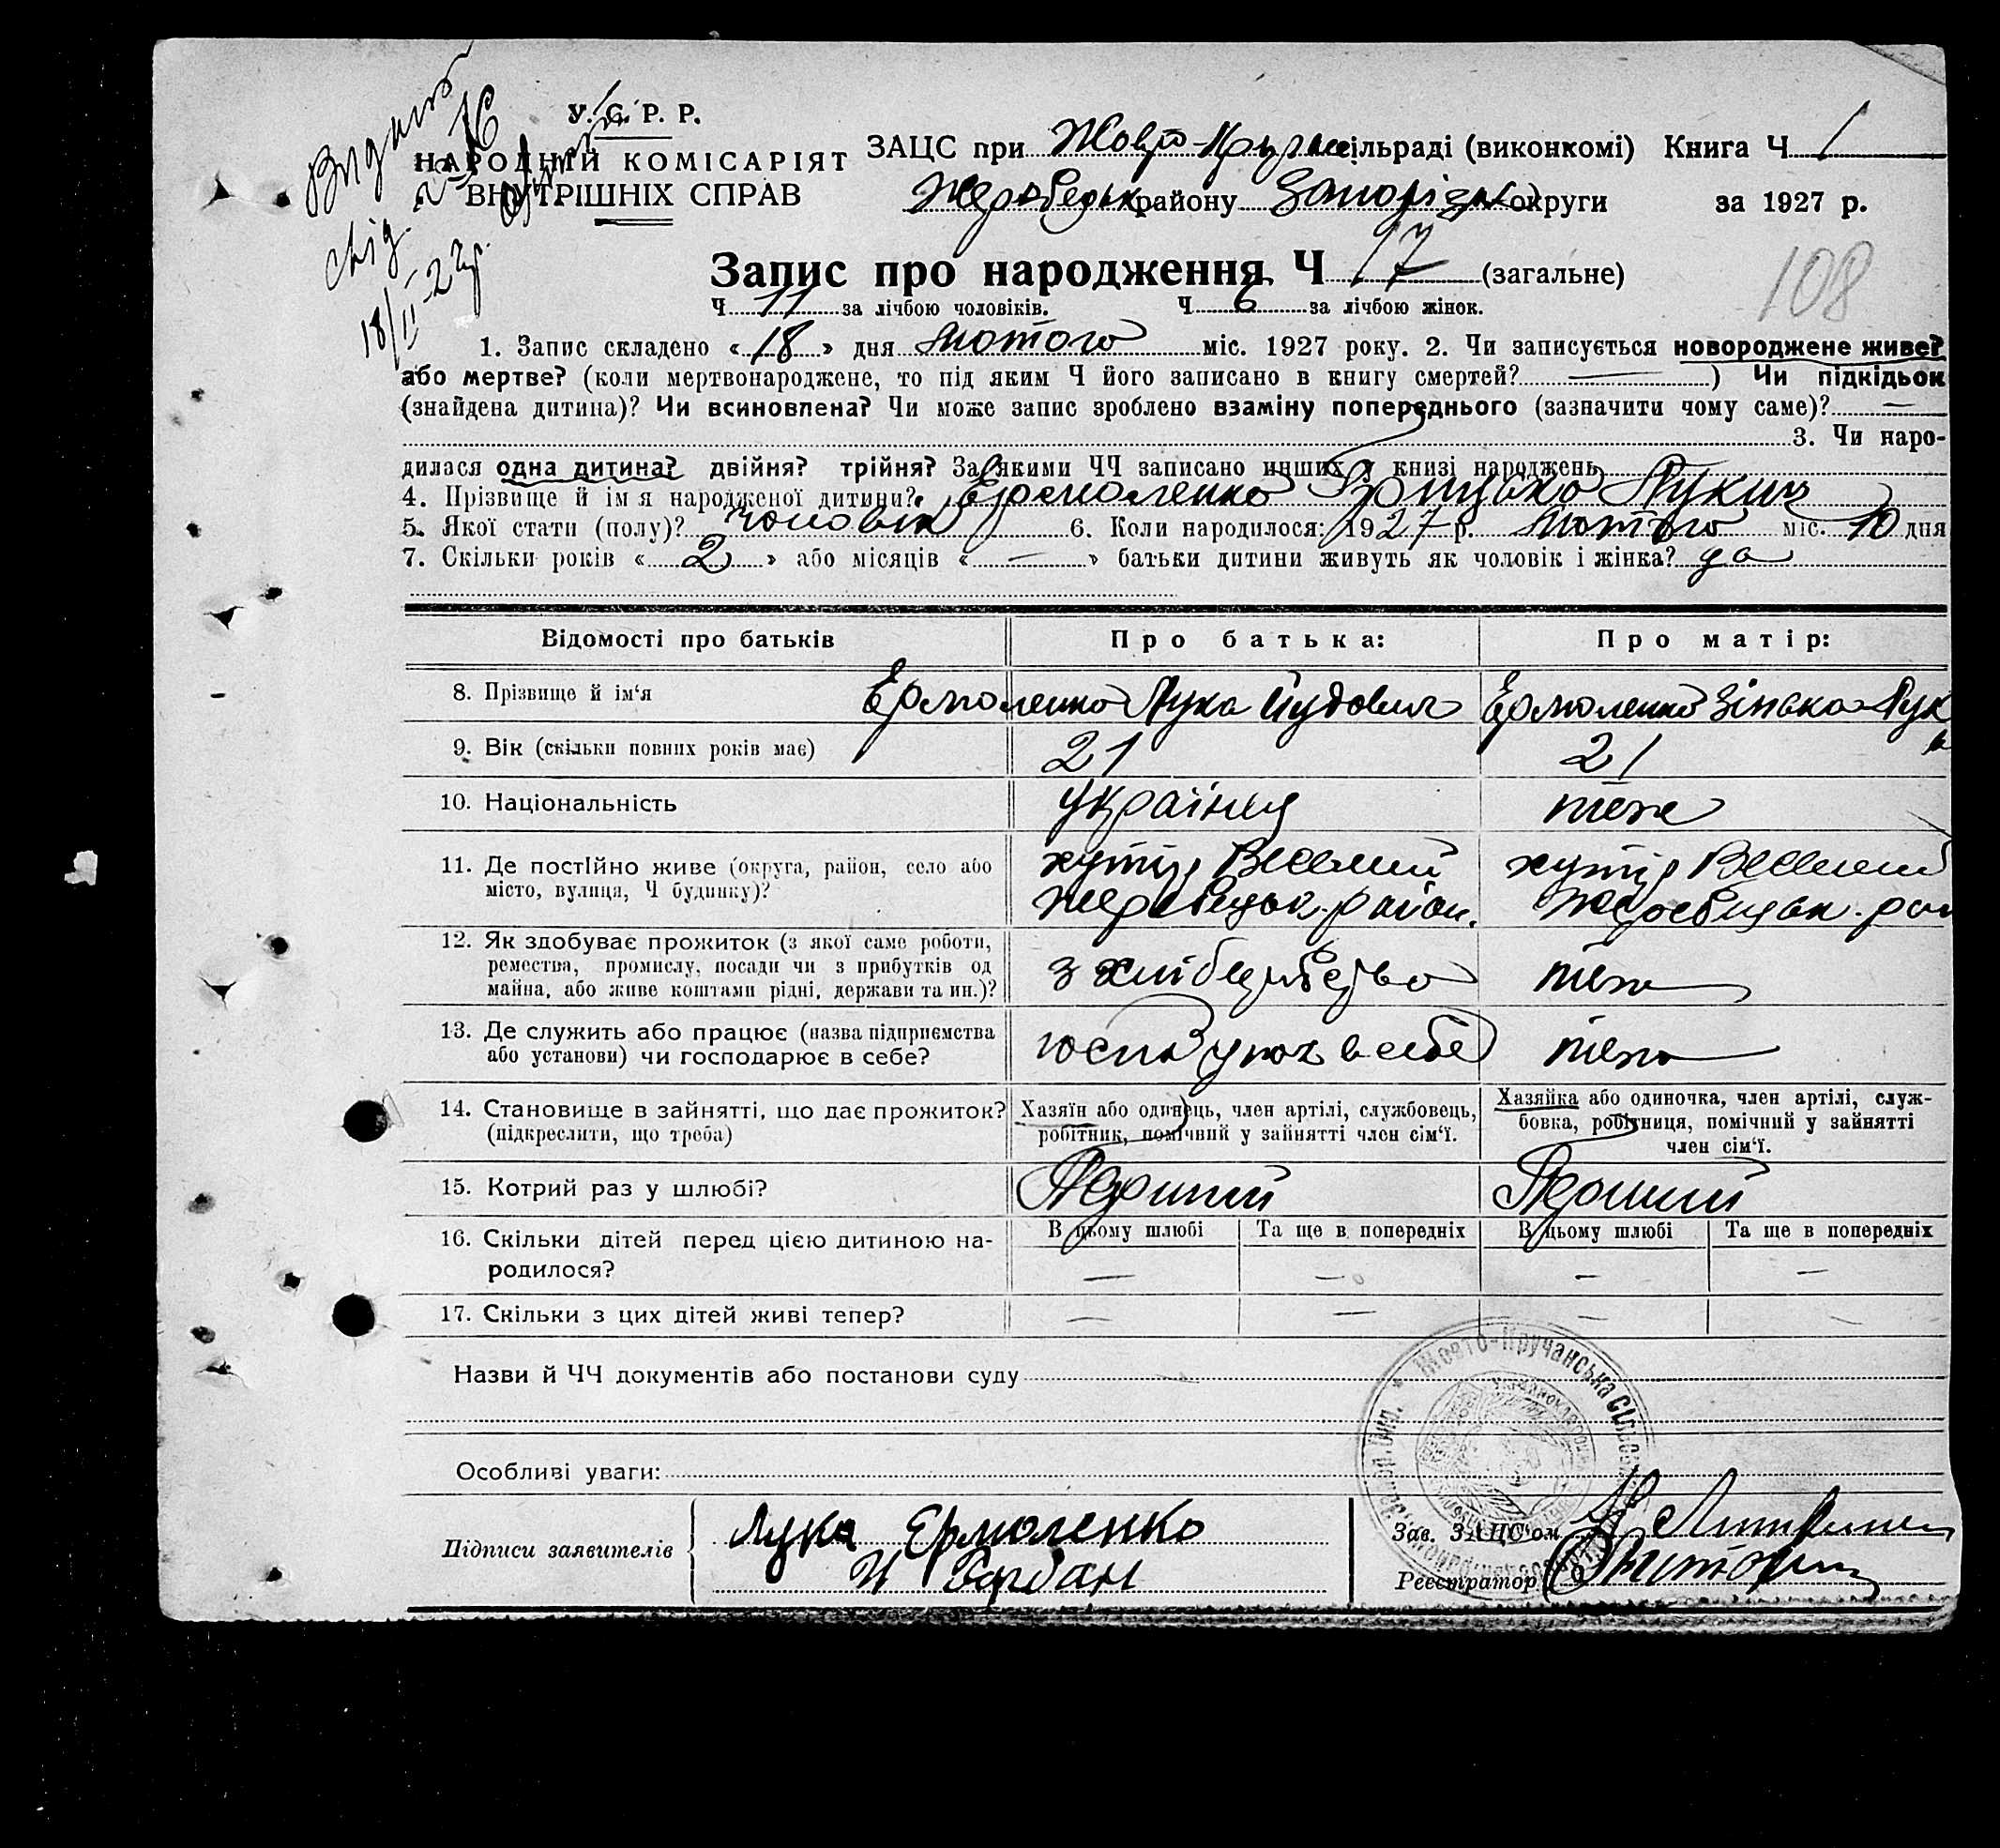 Видано
свід. 2376
18/II-27р.
У. С. Р. Р.
НАРОДНІЙ КОМІСАРІЯТ
ВНУТРІШНІХ СПРАВ
ЗАЦС при Жовто-Круча сільраді (виконкомі) Книга Ч 1
Жеребецьк району Запорізьк округи за 1927 р.
108
Запис про народження Ч 17 (загальне)
Ч 11 за лічбою чоловіків. Ч 6 за лічбою жінок.
1. Запис складено «18» дня лютого міс. 1927 року. 2. Чи записується новороджене живе?
або мертве? (коли мертвонароджене, то під яким Ч його записано в книгу смертей? —) Чи підкідьок
(знайдена дитина)? Чи всиновлена? Чи може запис зроблено взаміну попереднього (зазначити чому саме)? —
3. Чи наро-
дилася одна дитина? двійня? трійня? За якими ЧЧ записано инших у книзі народжень
4. Прізвище й ім'я народженої дитини? Єрмоленко Грицько Лукич
5. Якої стати (полу)? чоловік 6. Коли народилося: 1927 р. лютого міс. 10 дня
7. Скільки років «2» або місяців «—» батьки дитини живуть як чоловік і жінка? да
Відомості про батьків Про батька: Про матір:
8. Прізвище й ім'я Єрмоленко Лука Йудович Єрмоленко Зінька Лук
9. Вік (скільки повних років має) 21 21
10. Національність українец теже
11. Де постійно живе (округа, район, село або хутір Веселий хутір Веселий
місто, вулиця, Ч будинку)? Жеребецьк. район. Жеребецьк. рай
12. Як здобуває прожиток (з якої саме роботи,
ремества, промислу, посади чи з прибутків од з хліберобство теже
майна, або живе коштами рідні, держави та ин.)?
13. Де служить або працює (назва підприємства
або установи) чи господарює в себе? в себе теже
14. Становище в зайнятті, що дає прожиток? Хазяїн або одинець, член артілі, службовець, Хазяйка або одиночка, член артілі, служ-
(підкреслити, що треба) робітник, помічний у зайнятті член сім'ї. бовка, робітниця, помічний у зайнятті
член сім'ї.
15. Котрий раз у шлюбі? Перший Перший
16. Скільки дітей перед цією дитиною на- В цьому шлюбі Та ще в попередніх В цьому шлюбі Та ще в попередніх
родилося? — — — —
17. Скільки з цих дітей живі тепер? — — — —
Назви й ЧЧ документів або постанови суду
Жовто-Кручанська
Особливі уваги:
Підписи заявителів Лука Ермоленко Зав. ЗАЦС'ом
И Богдан Реєстратор